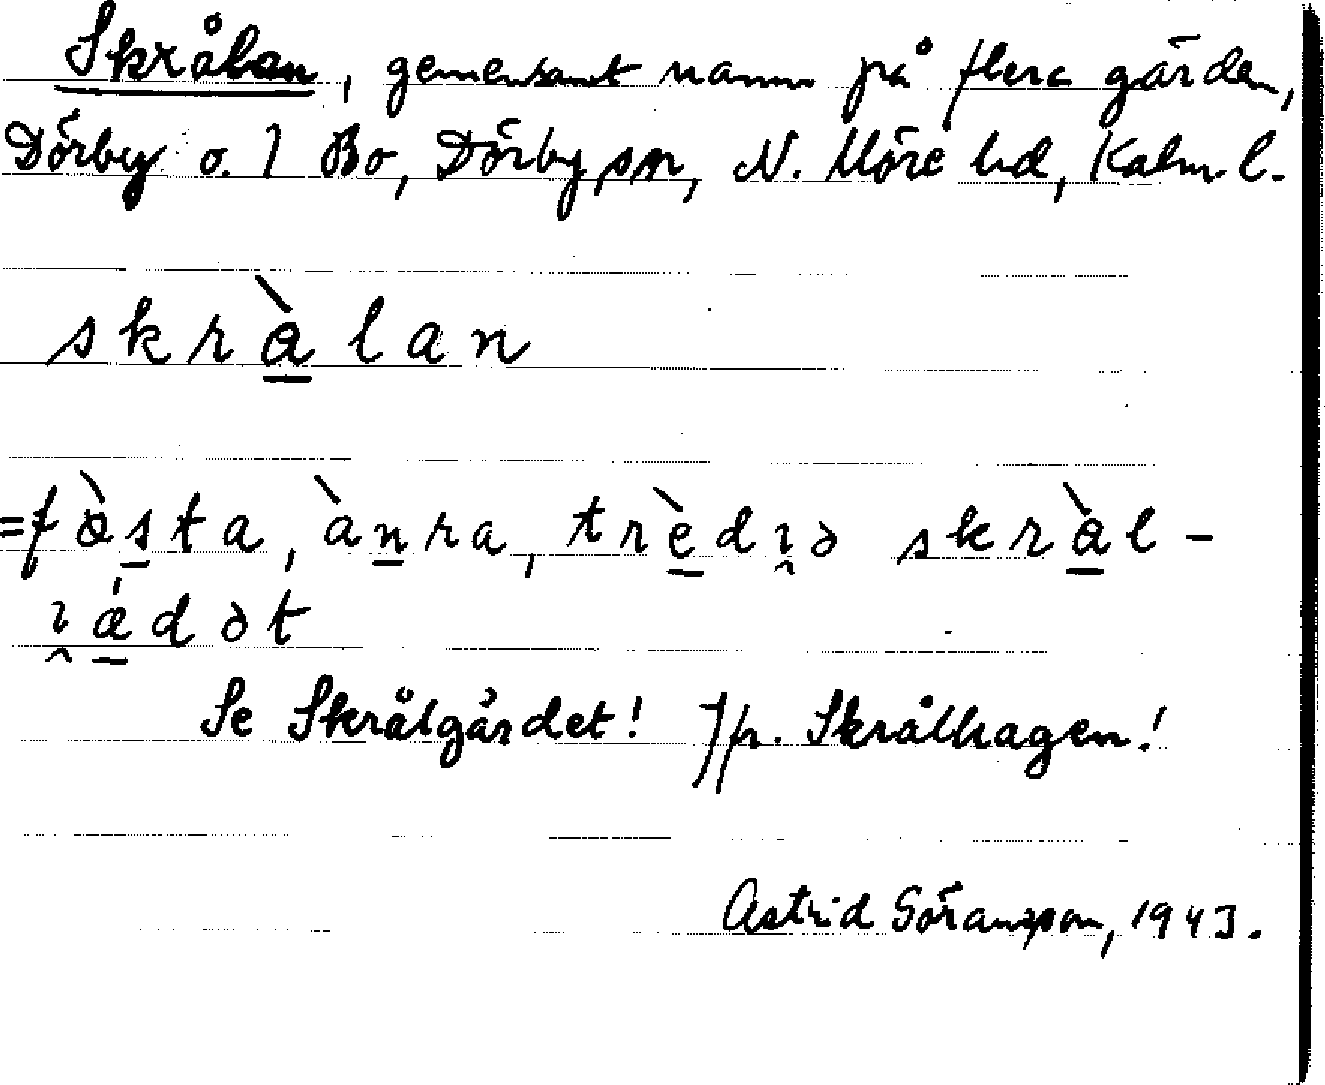 Skrålan, gemensamt namn på flera gärden,
Dörby o. l Bo, Dörby sn, N. Möre hd, Kalm. l.
skràlan
=fə̀sta, ànra, trèdı̯ə skràl-
ı̯ǽdət
Se Skrålgärdet! Jfr. Skrålhagen!
Astrid Göransson, 1943.